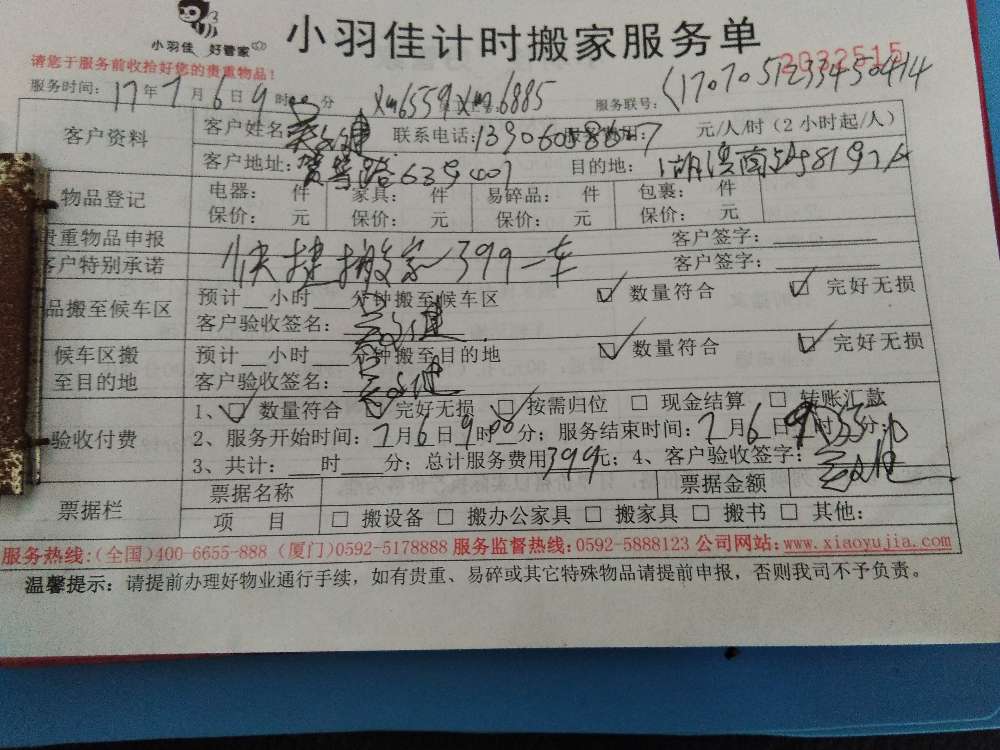 小羽佳 好管家
小羽佳计时搬家服务单
请您于服务前收拾好您的贵重物品！
2032515
服务时间：17年7月6日9时 分 Xm6559 Xm6885 服务联号：
客户资料
客户姓名： 联系电话： 元/人/时（2小时起/人）
客户地址： 639 401 目的地：
物品登记
电器： 件 家具： 件 易碎品： 件 包裹： 件
保价： 元 保价： 元 保价： 元 保价： 元
贵重物品申报 客户签字：
客户特别承诺 客户签字：
快捷搬家399一车
品搬至候车区
预计 小时 分钟搬至候车区 数量符合 完好无损
客户验收签名：
候车区搬至目的地
预计 小时 分钟搬至目的地 数量符合 完好无损
客户验收签名：
验收付费
1、 数量符合 完好无损 按需归位 □ 现金结算 □ 转账汇款
2、服务开始时间：7月6日9时00分；服务结束时间：7月6日 时 分；
3、共计： 时 分；总计服务费用399元；4、客户验收签字：
票据栏
票据名称 票据金额
项 目 □ 搬设备 □ 搬办公家具 □ 搬家具 □ 搬书 □ 其他：
服务热线：(全国)400-6655-888 (厦门)0592-5178888 服务监督热线：0592-5888123 公司网站：www.xiaoyujia.com
温馨提示：请提前办理好物业通行手续，如有贵重、易碎或其它特殊物品请提前申报，否则我司不予负责。